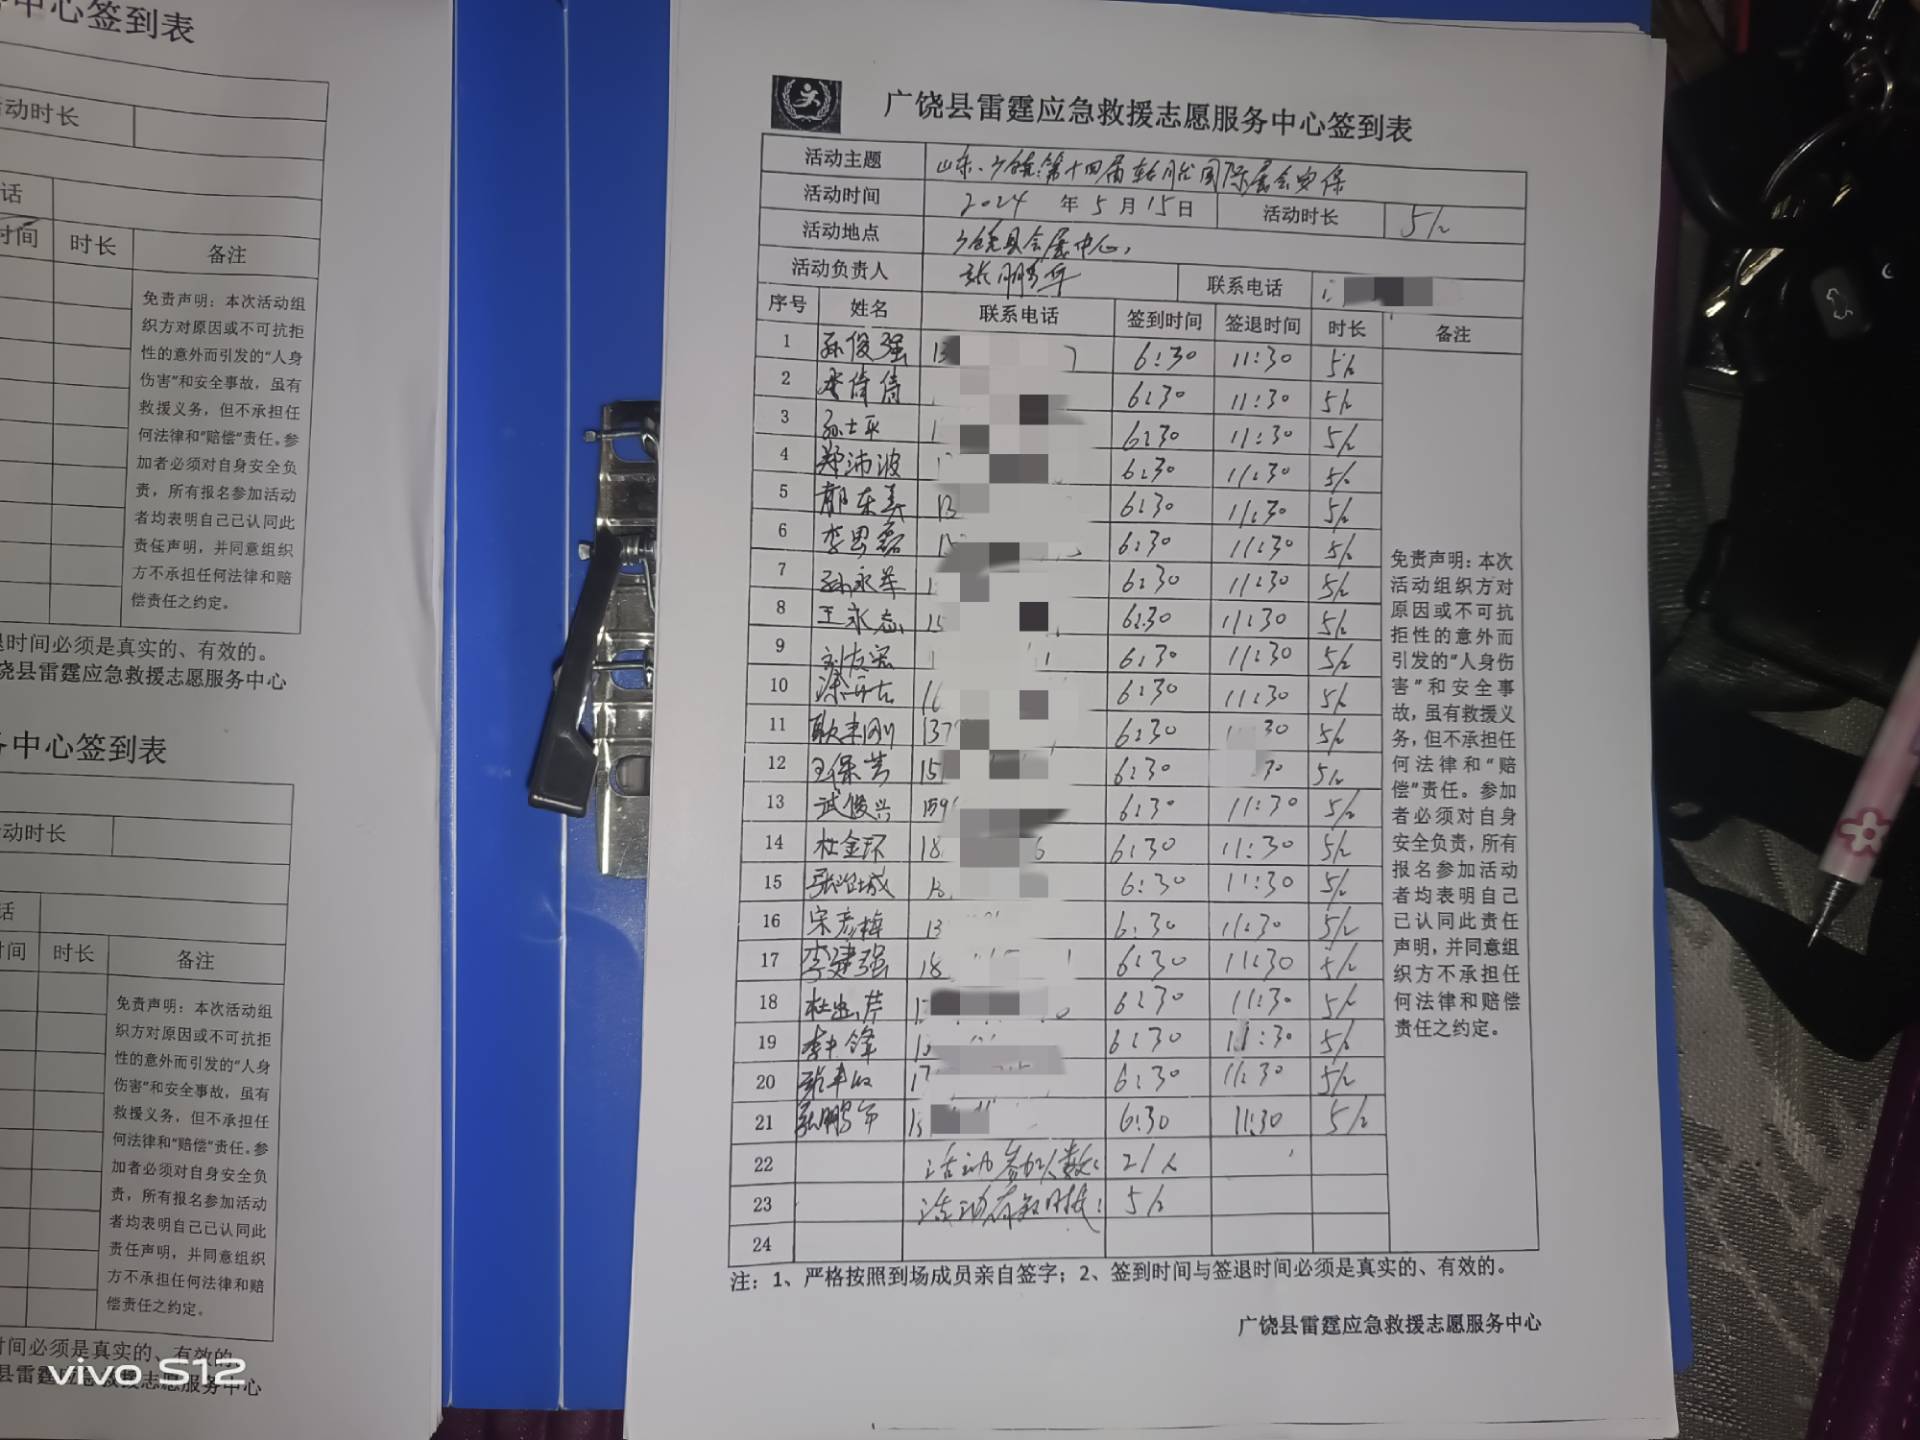 中心签到表
活动时长
话
时间 时长 备注
免责声明：本次活动组
织方对原因或不可抗拒
性的意外而引发的“人身
伤害”和安全事故，虽有
救援义务，但不承担任
何法律和“赔偿”责任。参
加者必须对自身安全负
责，所有报名参加活动
者均表明自己已认同此
责任声明，并同意组织
方不承担任何法律和赔
偿责任之约定。
退时间必须是真实的、有效的。
饶县雷霆应急救援志愿服务中心
务中心签到表
动时长
话
间 时长 备注
免责声明：本次活动组
织方对原因或不可抗拒
性的意外而引发的“人身
伤害”和安全事故，虽有
救援义务，但不承担任
何法律和“赔偿”责任。参
加者必须对自身安全负
责，所有报名参加活动
者均表明自己已认同此
责任声明，并同意组织
方不承担任何法律和赔
偿责任之约定。
时间必须是真实的、有效的。
县雷霆应急救援志愿服务中心
vivo S12
广饶县雷霆应急救援志愿服务中心签到表
活动主题 山东·广饶第十四届轮胎国际展会安保
活动时间 2024 年 5 月 15 日 活动时长 5h
活动地点 广饶县会展中心
活动负责人 张鹏军 联系电话
序号 姓名 联系电话 签到时间 签退时间 时长 备注
1 孙俊强 13 7 6:30 11:30 5h
2 李倩倩 6:30 11:30 5h
3 孙士平 1 6:30 11:30 5h
4 郑沛波 1 6:30 11:30 5h
5 东 13 6:30 11:30 5h
6 李思磊 1 6:30 11:30 5h
7 孙永军 1 6:30 11:30 5h
8 王永志 15 6:30 11:30 5h
9 刘友 1 6:30 11:30 5h
10 16 6:30 11:30 5h
11 耿丰刚 137 6:30 30 5h
12 王保 15 6:30 30 5h
13 武俊兴 159 6:30 11:30 5h
14 杜金环 18 6 6:30 11:30 5h
15 张治城 13 6:30 11:30 5h
16 宋彦梅 13 6:30 11:30 5h
17 李建强 18 6:30 11:30 5h
18 杜 芹 1 6:30 11:30 5h
19 李中锋 1 6:30 11:30 5h
20 张丰收 17 6:30 11:30 5h
21 张鹏军 1 6:30 11:30 5h
22 活动参加人数： 21人
23 活动有效时长： 5h
24
免责声明：本次
活动组织方对
原因或不可抗
拒性的意外而
引发的“人身伤
害”和安全事
故，虽有救援义
务，但不承担任
何法律和“赔
偿”责任。参加
者必须对自身
安全负责，所有
报名参加活动
者均表明自己
已认同此责任
声明，并同意组
织方不承担任
何法律和赔偿
责任之约定。
注：1、严格按照到场成员亲自签字；2、签到时间与签退时间必须是真实的、有效的。
广饶县雷霆应急救援志愿服务中心